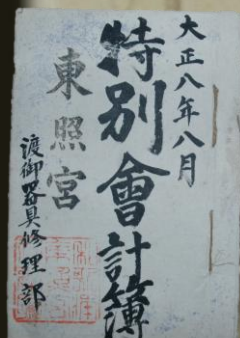 大正八年八月
特別會計簿
東照宮
渡御器具修理部